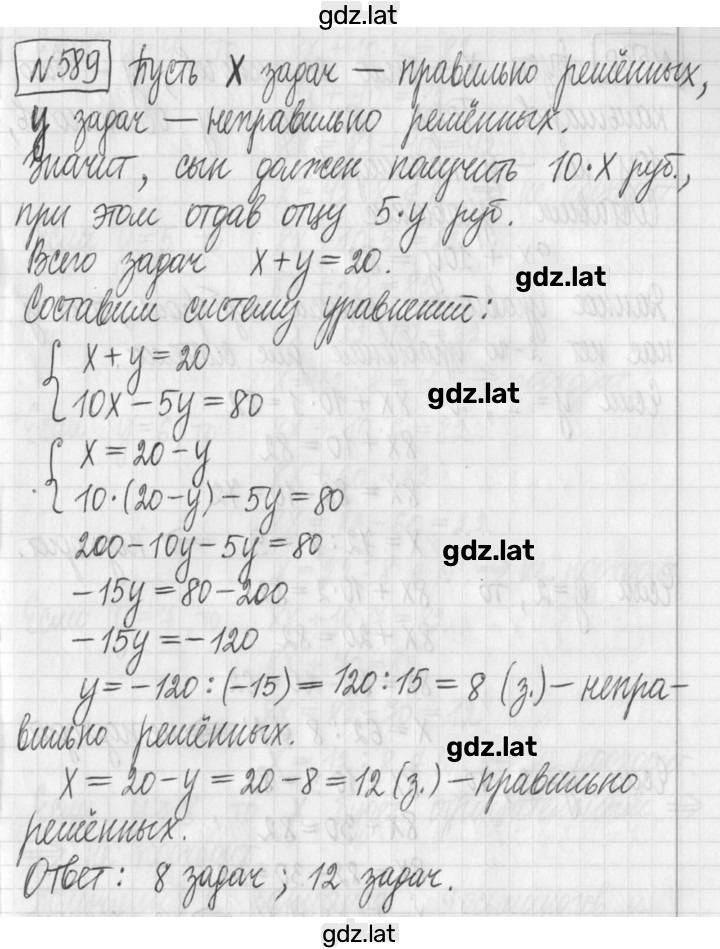 gdz.lat
№589 Пусть x задач — правильно решённых,
y задач — неправильно решённых.
Значит, сын должен получить 10·x руб.,
при этом отдав отцу 5·y руб.
Всего задач x+y=20.
gdz.lat
Составим систему уравнений:
{ x+y=20
10x-5y=80
gdz.lat
{ x=20-y
10·(20-y)-5y=80
200-10y-5y=80
gdz.lat
-15y=80-200
-15y=-120
y=-120:(-15)=120:15=8 (з.)-непра-
вильно решённых.
gdz.lat
x=20-y=20-8=12 (з.)-правильно
решённых.
Ответ: 8 задач; 12 задач.
gdz.lat